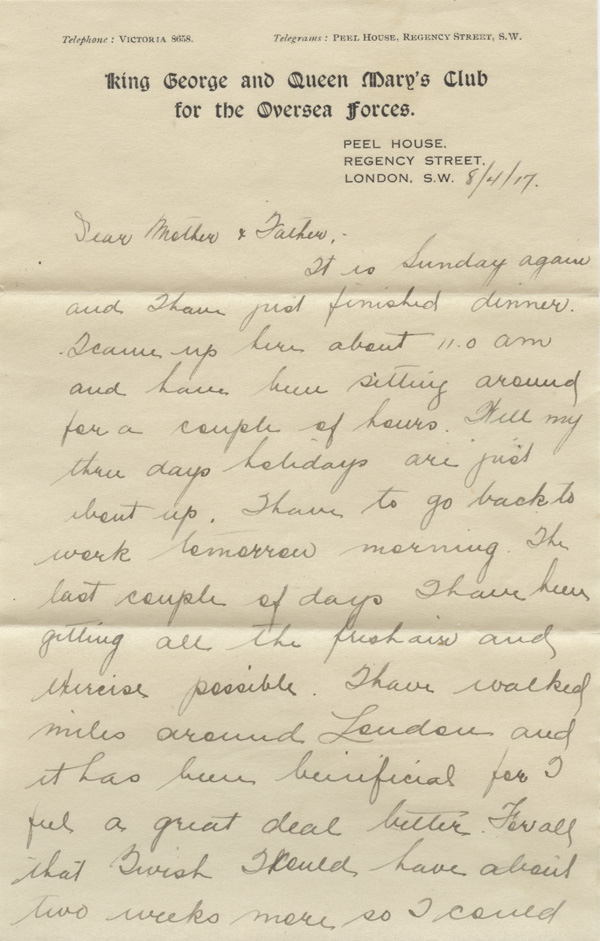 Telephone: VICTORIA 8658.
Telegrams: PEEL HOUSE, REGENCY STREET, S.W.
King George and Queen Mary's Club
for the Oversea Forces.
PEEL HOUSE,
REGENCY STREET,
LONDON, S.W. 8/4/17.
Dear Mother & Father,-
It is Sunday again
and I have just finished dinner.
I came up here about 11.0 am
and have been sitting around
for a couple of hours. Well my
three days holidays are just
about up. I have to go back to
work tomorrow morning. The
last couple of days I have been
getting all the fresh air and
exercise possible. I have walked
miles around London and
it has been beinificial for I
feel a great deal better. For all
that I wish I could have about
two weeks more so I could